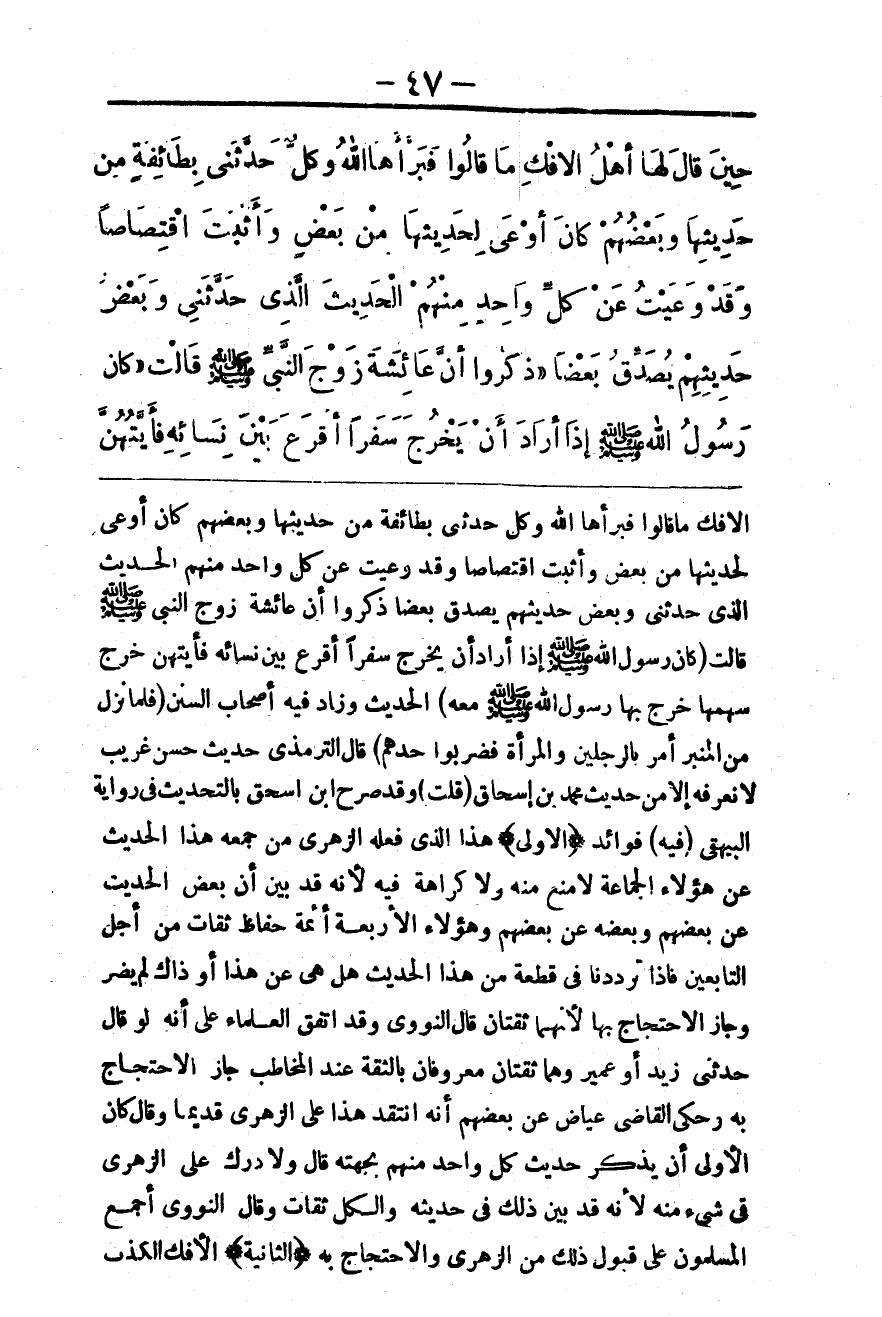 — ٤٧ —
حِينَ قالَ لَهَا أهْلُ الافْكِ مَا قالُوا فَبَرأَهاَ اللهُ وَكلٌّ حَدَّثَنى بِطَائِفةٍ مِن
حَدِيثِها وبَعْضُهُمْ كانَ أوْعَى لِحَدِيثِهَا مِنْ بَعْضٍ وَأَثْبَتَ اقْتِصَاصاً
وَقَدْ وَعَيْتُ عَنْ كلِّ وَاحِدٍ مِنْهُمْ الْحَدِيثَ الَّذِى حَدَّثَنِي وَبَعْضُ
حَدِيثِهِمْ يُصَدِّقُ بَعْضَا «ذكَرُوا أنَّ عَائِشَةَ زَوْجَ النَّبيِّ ﷺ قَالتْ «كان
رَسُولُ اللهِ ﷺ إذَا أرَادَ أَنْ يَخْرُجَ سَفَراً أقرَعَ بَيْنَ نِسَائِهِ فأَيَّتُهُنَّ
الافك ماقالوا فبرأها الله وكل حدثى بطائفة من حديثها وبعضهم كان أوعى
لحديثها من بعض وأثبت اقتصاصا وقد رعيت عن كل واحد منهم الحديث
الذى حدثنى وبعض حديثهم يصدق بعضا ذكروا أن عائشة زوج النبى ﷺ
قالت (كان رسول الله ﷺ إذا أراد أن يخرج سفراً أقرع بين نسائه فأيتهن خرج
سهمها خرج بها رسول الله ﷺ معه) الحديث وزاد فيه أصحاب السنن (فلما نزل
من المنبر أمر بالرجلين والمرأة فضربوا حدهم) قال الترمذى حديث حسن غريب
لا نعرفه إلا من حديث محمد بن إسحاق (قلت) وقد صرح ابن اسحق بالتحديث فى رواية
البيهقى (فيه) فوائد ﴿الاولى﴾ هذا الذى فعله الزهرى من جمعه هذا الحديث
عن هؤلاء الجماعة لا منع منه ولا كراهة فيه لأنه قد بين أن بعض الحديت
عن بعضهم وبعضه عن بعضهم وهؤلاء الأربعة أئمة حفاظ ثقات من أجل
التابعين فاذا ترددنا فى قطعة من هذا الحديث هل هى عن هذا أو ذاك لم يضر
وجاز الاحتجاج بها لأنهما ثقتان قال النووى وقد اتفق العلماء على أنه لو قال
حدثنى زيد أو عمير وهما ثقتان معروفان بالثقة عند المخاطب جاز الاحتجاج
به رحكى القاضى عياض عن بعضهم أنه انتقد هذا على الزهرى قديما وقال كان
الأولى أن يذكر حديث كل واحد منهم بجهته قال ولا درك على الزهرى
فى شىء منه لأنه قد بين ذلك فى حديثه والكل ثقات وقال النووى أجمع
المسلمون على قبول ذلك من الزهرى والاحتجاج به ﴿الثانية﴾ الأفك الكذب